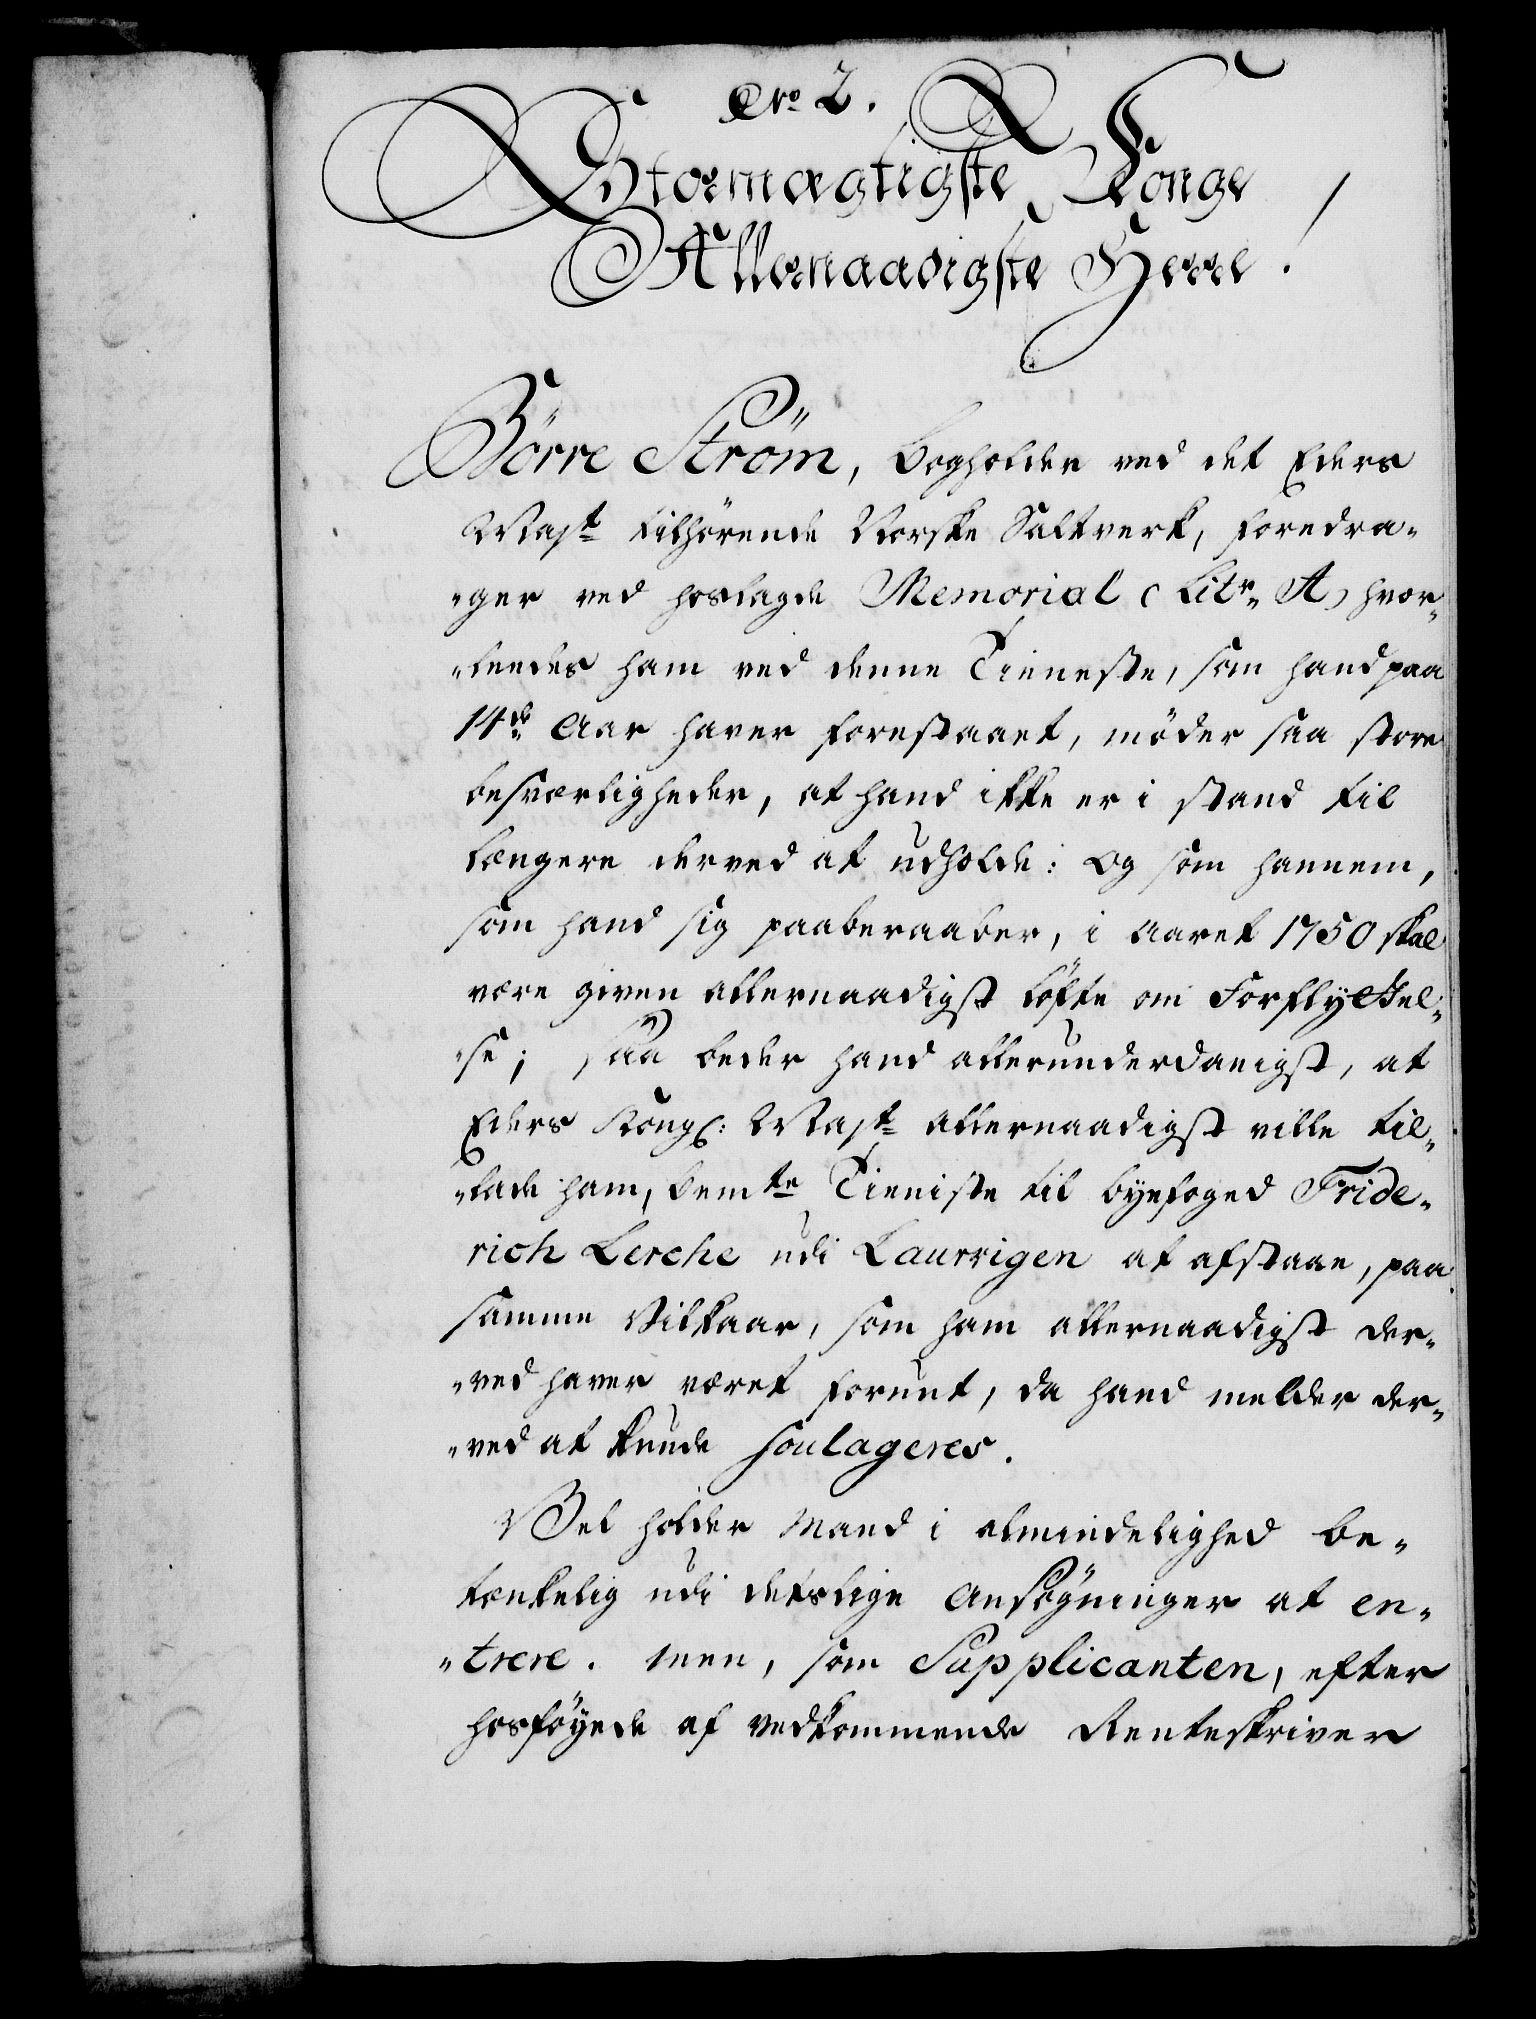 No 2.
Stormægtigste Konge
Allernaadigste Herre!
Börre Ström, Bogholder ved det Eders
Mayst tilhörende Norske Saltverk, foredra-
-ger ved hoslagde Memorial (Litr. A) hvor-
-ledes ham ved denne Tieneste, som hand paa
14de Aar haver forestaaet, möder saa store
besværligheder, at hand ikke er i stand til
længere derved at udholde: Og som hannem,
som hand sig paaberaaber, i Aaret 1750 skal
være given allernaadigst löfte om Forflyttel-
-se; saa beder hand allerunderdanigst, at
Eders Kongl: Mayst allernaadigst ville til-
-lade ham, bemte Tieniste til byefoged Fride-
rich Lerche udi Laurvigen at afstaae, paa
samme Vilkaar, som ham allernaadigst der-
-ved haver været forunt, da hand melder der-
-ved at kunde soulageres.
Vel holder Mand i almindelighed be-
tænkelig udi deslige Ansögninger at en-
-trere. Men, som Supplicanten, efter
hosföyede af vedkommende Renteskriver